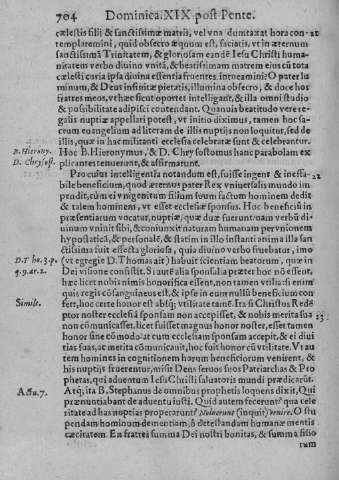 704 Dominica. XIX post Pente.
cælestis filij & sanctissimæ matris, vel vna dumtaxat hora con-
templaremini, quid obsecro æquum est, faciatis, vt in æternum
sanctissimã Trinitatem, & gloriosam eandẽ Iesu Christi huma-
nitatem verbo diuino vnitã, & beatissimam matrem eius cũ tota
cælesti curia ipsa diuina essentia fruentes, intueamini? O pater lu
minum, & Deus infinitæ pietatis, illumina obsecro, & doce hos
fratres meos, vt hæc sicut oportet intelligãt, & illa omni studio
& possibilitate adipisci contendant. Quanuis beatitudo vere re-
galis nuptiæ appellari potest, vt initio diximus, tamen hoc sa-
crum euangelium ad literam de illis nuptijs non loquitur, sed de
illis, quæ in hac militanti ecclesia celebratæ sunt & celebrantur.
B. Hierony. Hoc B. Hieronymus, & D. Chrysostomus hanc parabolam ex
D. Chrysost. plicantes tenuerunt, & affirmarunt.
Pro cuius intelligentia notandum est, fuisse ingens & ineffa- 22
bile beneficium, quod æternus pater Rex vniuersalis mundo im
pendit, cùm ei vnigenitum filium suum factum hominem dedit
& talem hominem, vt esset ecclesiæ sponsus. Hoc beneficiũ in
præsentiarum vocatur, nuptiæ, quæ duæ fuerunt: nam verbũ di-
uinum vniuit sibi, & coniunxit naturam humanam per vnionem
hypostaticã, & personalẽ, & statim in illo instanti anima illa san
ctissima fuit effecta gloriosa, quia diuino verbo fruebatur, imo
D. T ho. 3. p. (vt egregiè D. Thomas ait) habuit scientiam beatorum, quæ in
q. 9. ar. 2. Dei visione consistit. Si autẽ alia sponsalia præter hoc nõ essent,
hæc licet nobis nimis honorifica essent, non tamen vtilia: si enim
quis regis cõsanguineus est, & ipse in eum nullũ beneficium con
Simile. fert, hoc certe honor est absq; vtilitate tamẽ. Ita si Christus Redẽ
ptor noster ecclesiã sponsam non accepisset, & nobis merita sua 23
non cõmunicasset. licet fuisset magnus honor noster, esset tamen
honor sine cõmodo: at cum ecclesiam sponsam accepit, & ei diui
tias suas, ac merita cõmunicauit, hoc fuit honor cũ vtilitate. Vt au
tem homines in cognitionem horum beneficiorum venirent, &
his nuptijs fruerentur, misit Deus seruos suos Patriarchas & Pro
phetas, qui aduentum Iesu Christi saluatoris mundi prædicarũt.
Actu. 7. Atq; ita B. Stephanus de omnibus prophetis loquens dixit, Qui
prænuntiabant de aduentu iusti. Quid autem fecerunt? qua cele
ritate ad has nuptias properarunt? Noluerunt (inquit) venire. O stu
pendam hominum dementiam, ô detestandam humanæ mentis
cæcitatem. En fratres summa Dei nostri bonitas, & summa stino
rum